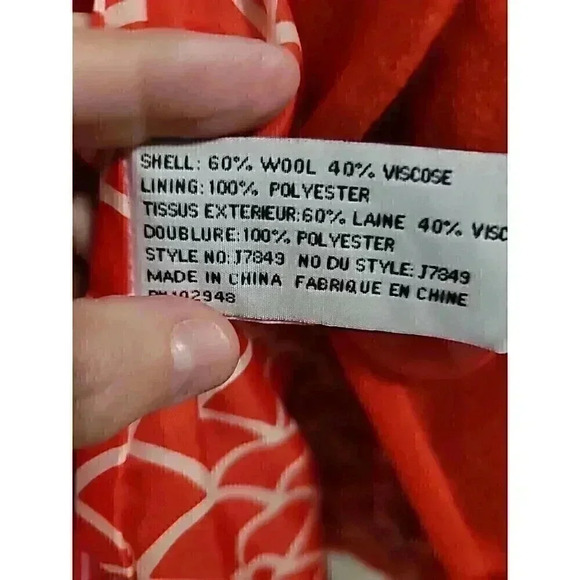 SHELL: 60% WOOL 40% VISCOSE
LINING: 100% POLYESTER
TISSUS EXTERIEUR: 60% LAINE 40% VISC
DOUBLURE: 100% POLYESTER
STYLE NO: J7849 NO DU STYLE: J7849
MADE IN CHINA FABRIQUE EN CHINE